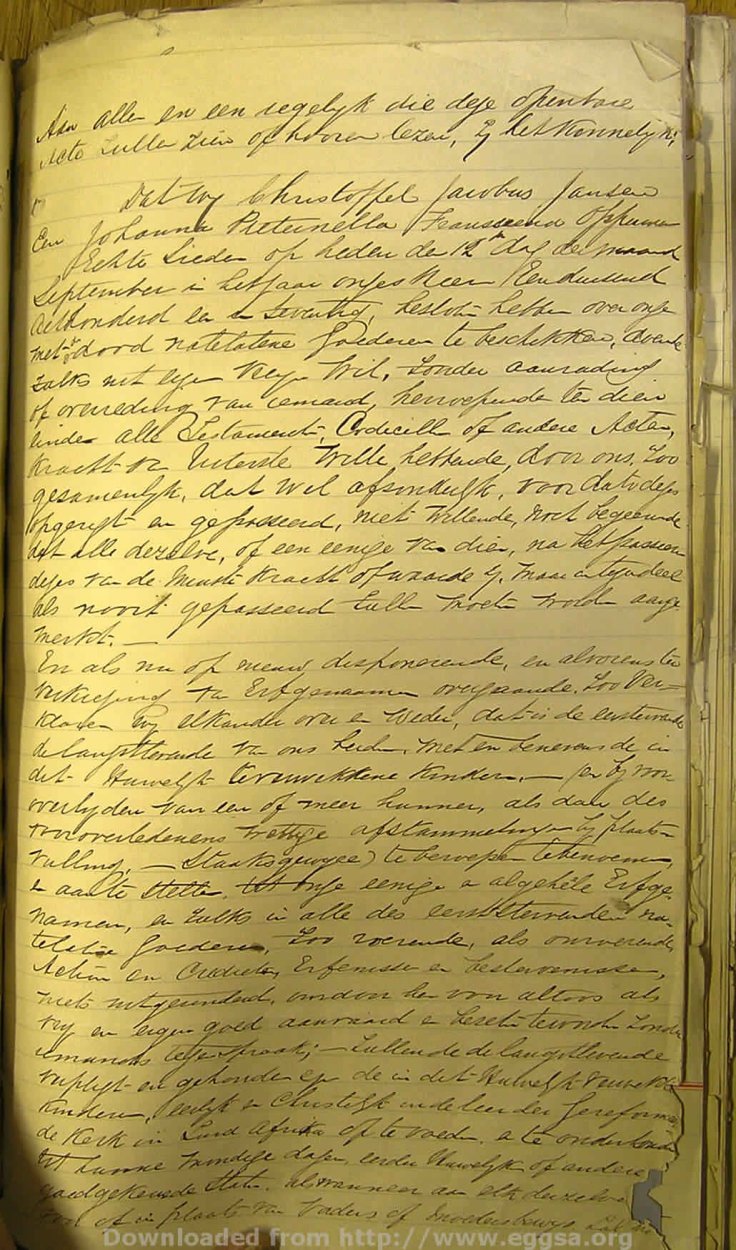 Aan allen en een iegelyk die deze openbare
Acte zullen zien of hooren lezen, zy het kennelyk;
Dat wy Christoffel Jacobus Jansen
En Johanna Pieternella
Echte Lieden op heden den 12de dag der maand
September in het jaar onzes Heer Eenduizend
Achthonderd en en Seventig, besloten hebben over onze
met dood natelatene Goederen te beschikken, doende
zulks uit eigen vrye Wil, zonder aanrading
of overreding van iemand, herroepende ten dien
einde alle Testamenten, Codicille of andere Acten,
Kracht van Uiterste Wille hebbende, door ons, zoo
gezamenlyk, als wel afzonderlyk, voor dato dezes
opgerigt en gepasseerd, niet willende, noch begeerende
dat alle dezelve, of een eenige van dien, na het passeeren
dezes van de minste kracht of waarde zy, maar integendeel
als nooit gepasseerd zullen moeten worden aange
merkt. —
En als nu op nieuw disponeerende, en alvorens ter
verkiezing van Erfgenaamen overgaande, zoo ver-
klaren wy elkander over en weder, dat is de eerststervende
de langstlevende van ons beiden, met en benevens de in
dit Huwelyk verwekkene kinderen, — (en by voor
overlyden van een of meer hunner, als dan des
vooroverledenens wettige afstammelingen by plaats-
vulling, — Staaksgewyze) te beroepen te benoemen,
en aan te stellen tot onze eenige en algehele Erfge-
namen, en zulks in alle des eerststervenden na-
telatene Goederen, zoo roerende, als onroerende,
Actien en Credieten, Erfenissen en besterfenissen,
niets uitgezonderd, omdoor hen voor altoos als
vry en eigen goed aanvaard en bezeten te worden zonder
iemands tegenspraak; — Zullende de langstlevende
verpligt en gehouden zyn de in dit Huwelyk verwekte
Kinderen, eerlyk en Christelyk in de leer der Gereformeer
de Kerk in Zuid Afrika op te voeden, en te onderhouden
tot hunne mondige dagen, eerder Huwelyk of andere
goedgekeurde Staat, alswanneer aan elk derzelve
voor of in plaats van Vaders of Moedersbewys
Downloaded from http://www.eggsa.org